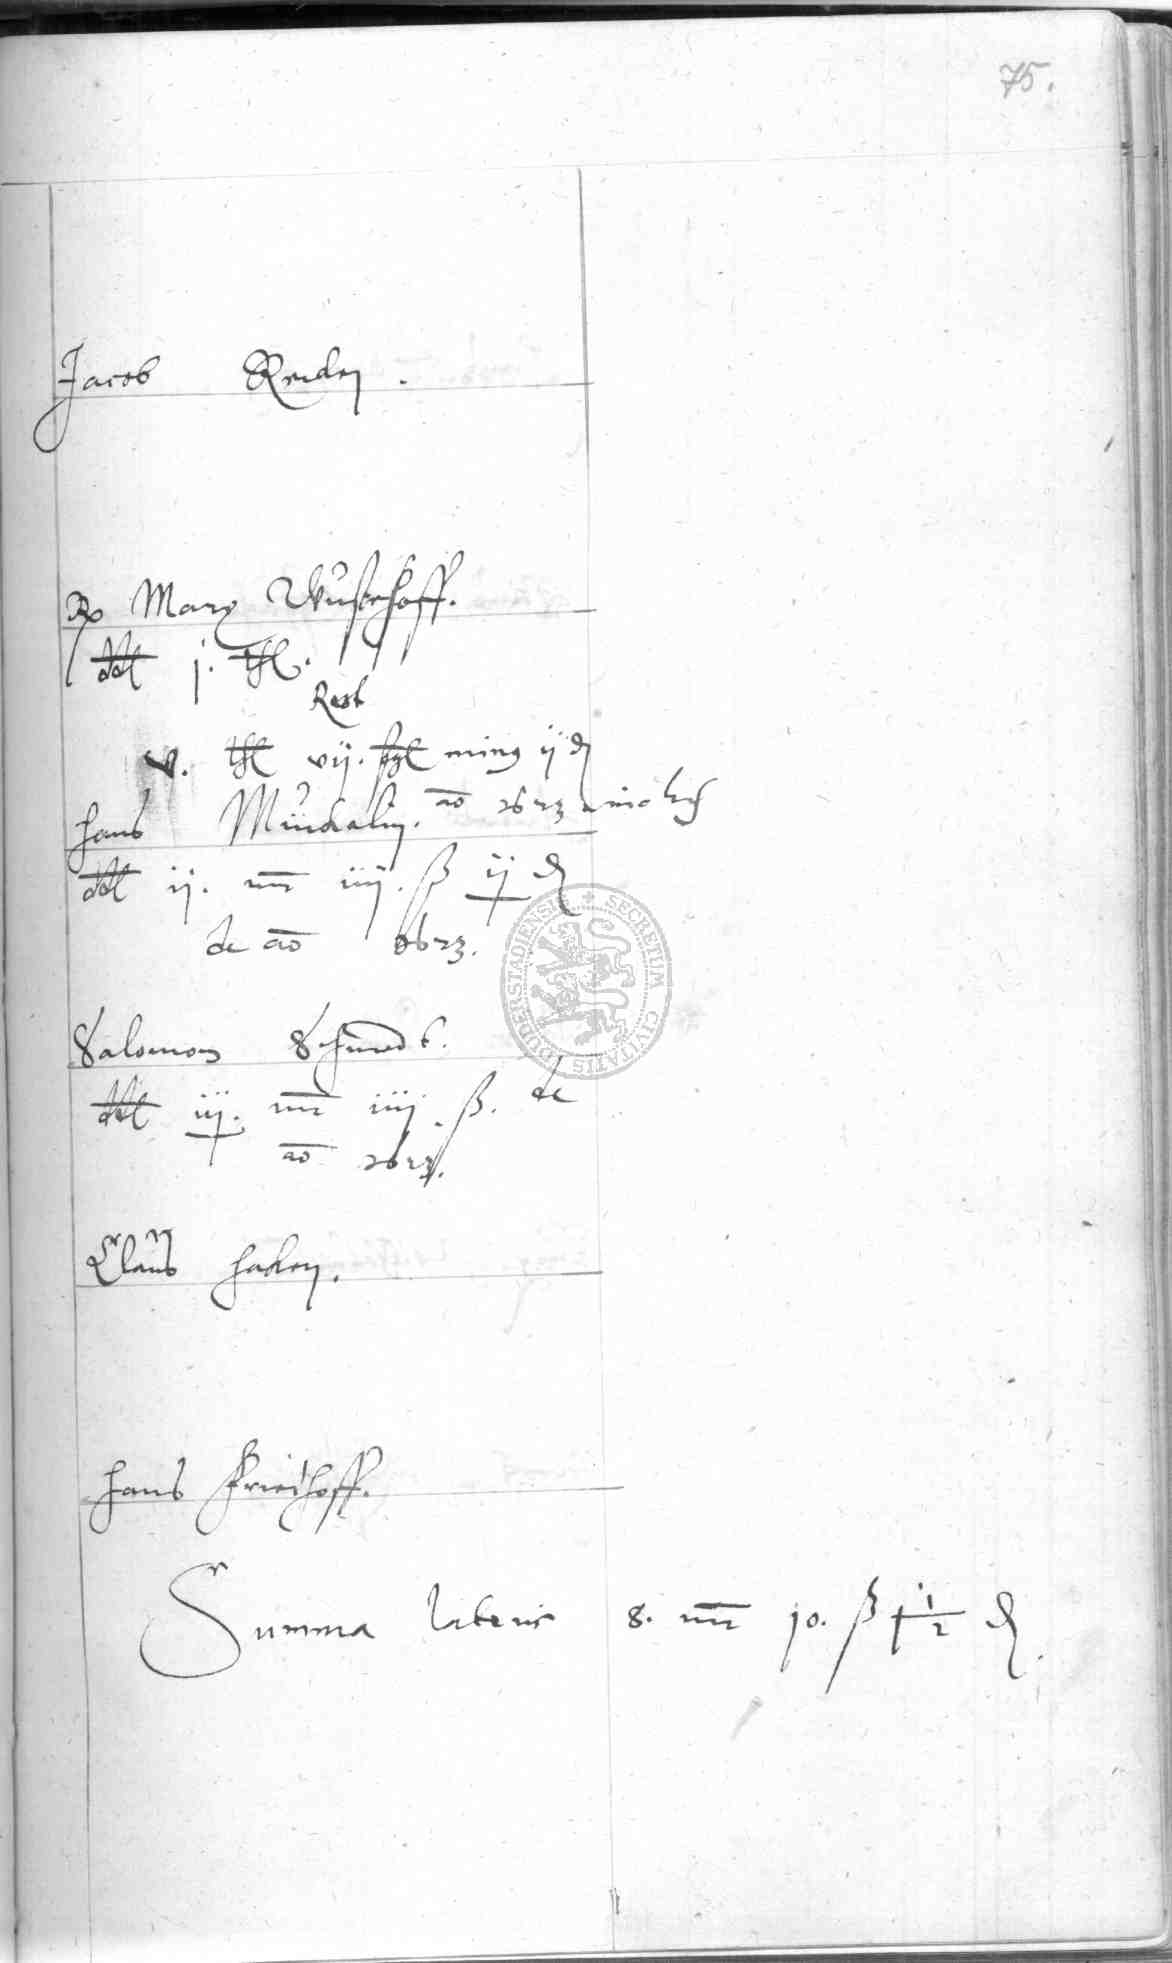 75.
Jacob Kreiden.
Rp Marx Wusthoff.
ddt j. thl.
Rest
v. thl vij. ßgl ming ij ₰
Hans Mündalin. ao 1623
ddt ij. mr iiij. ß ij ₰
de ao 1623.
Salomon Schmidt.
ddt iij. mr iiij. ß. de
ao 1623.
Claus Haken.
Hans Friedhoff.
Summa lateris 8. mr 10. ß 1 1/2 ₰
SECRETUM CIVITATIS DUDERSTADIENSIS